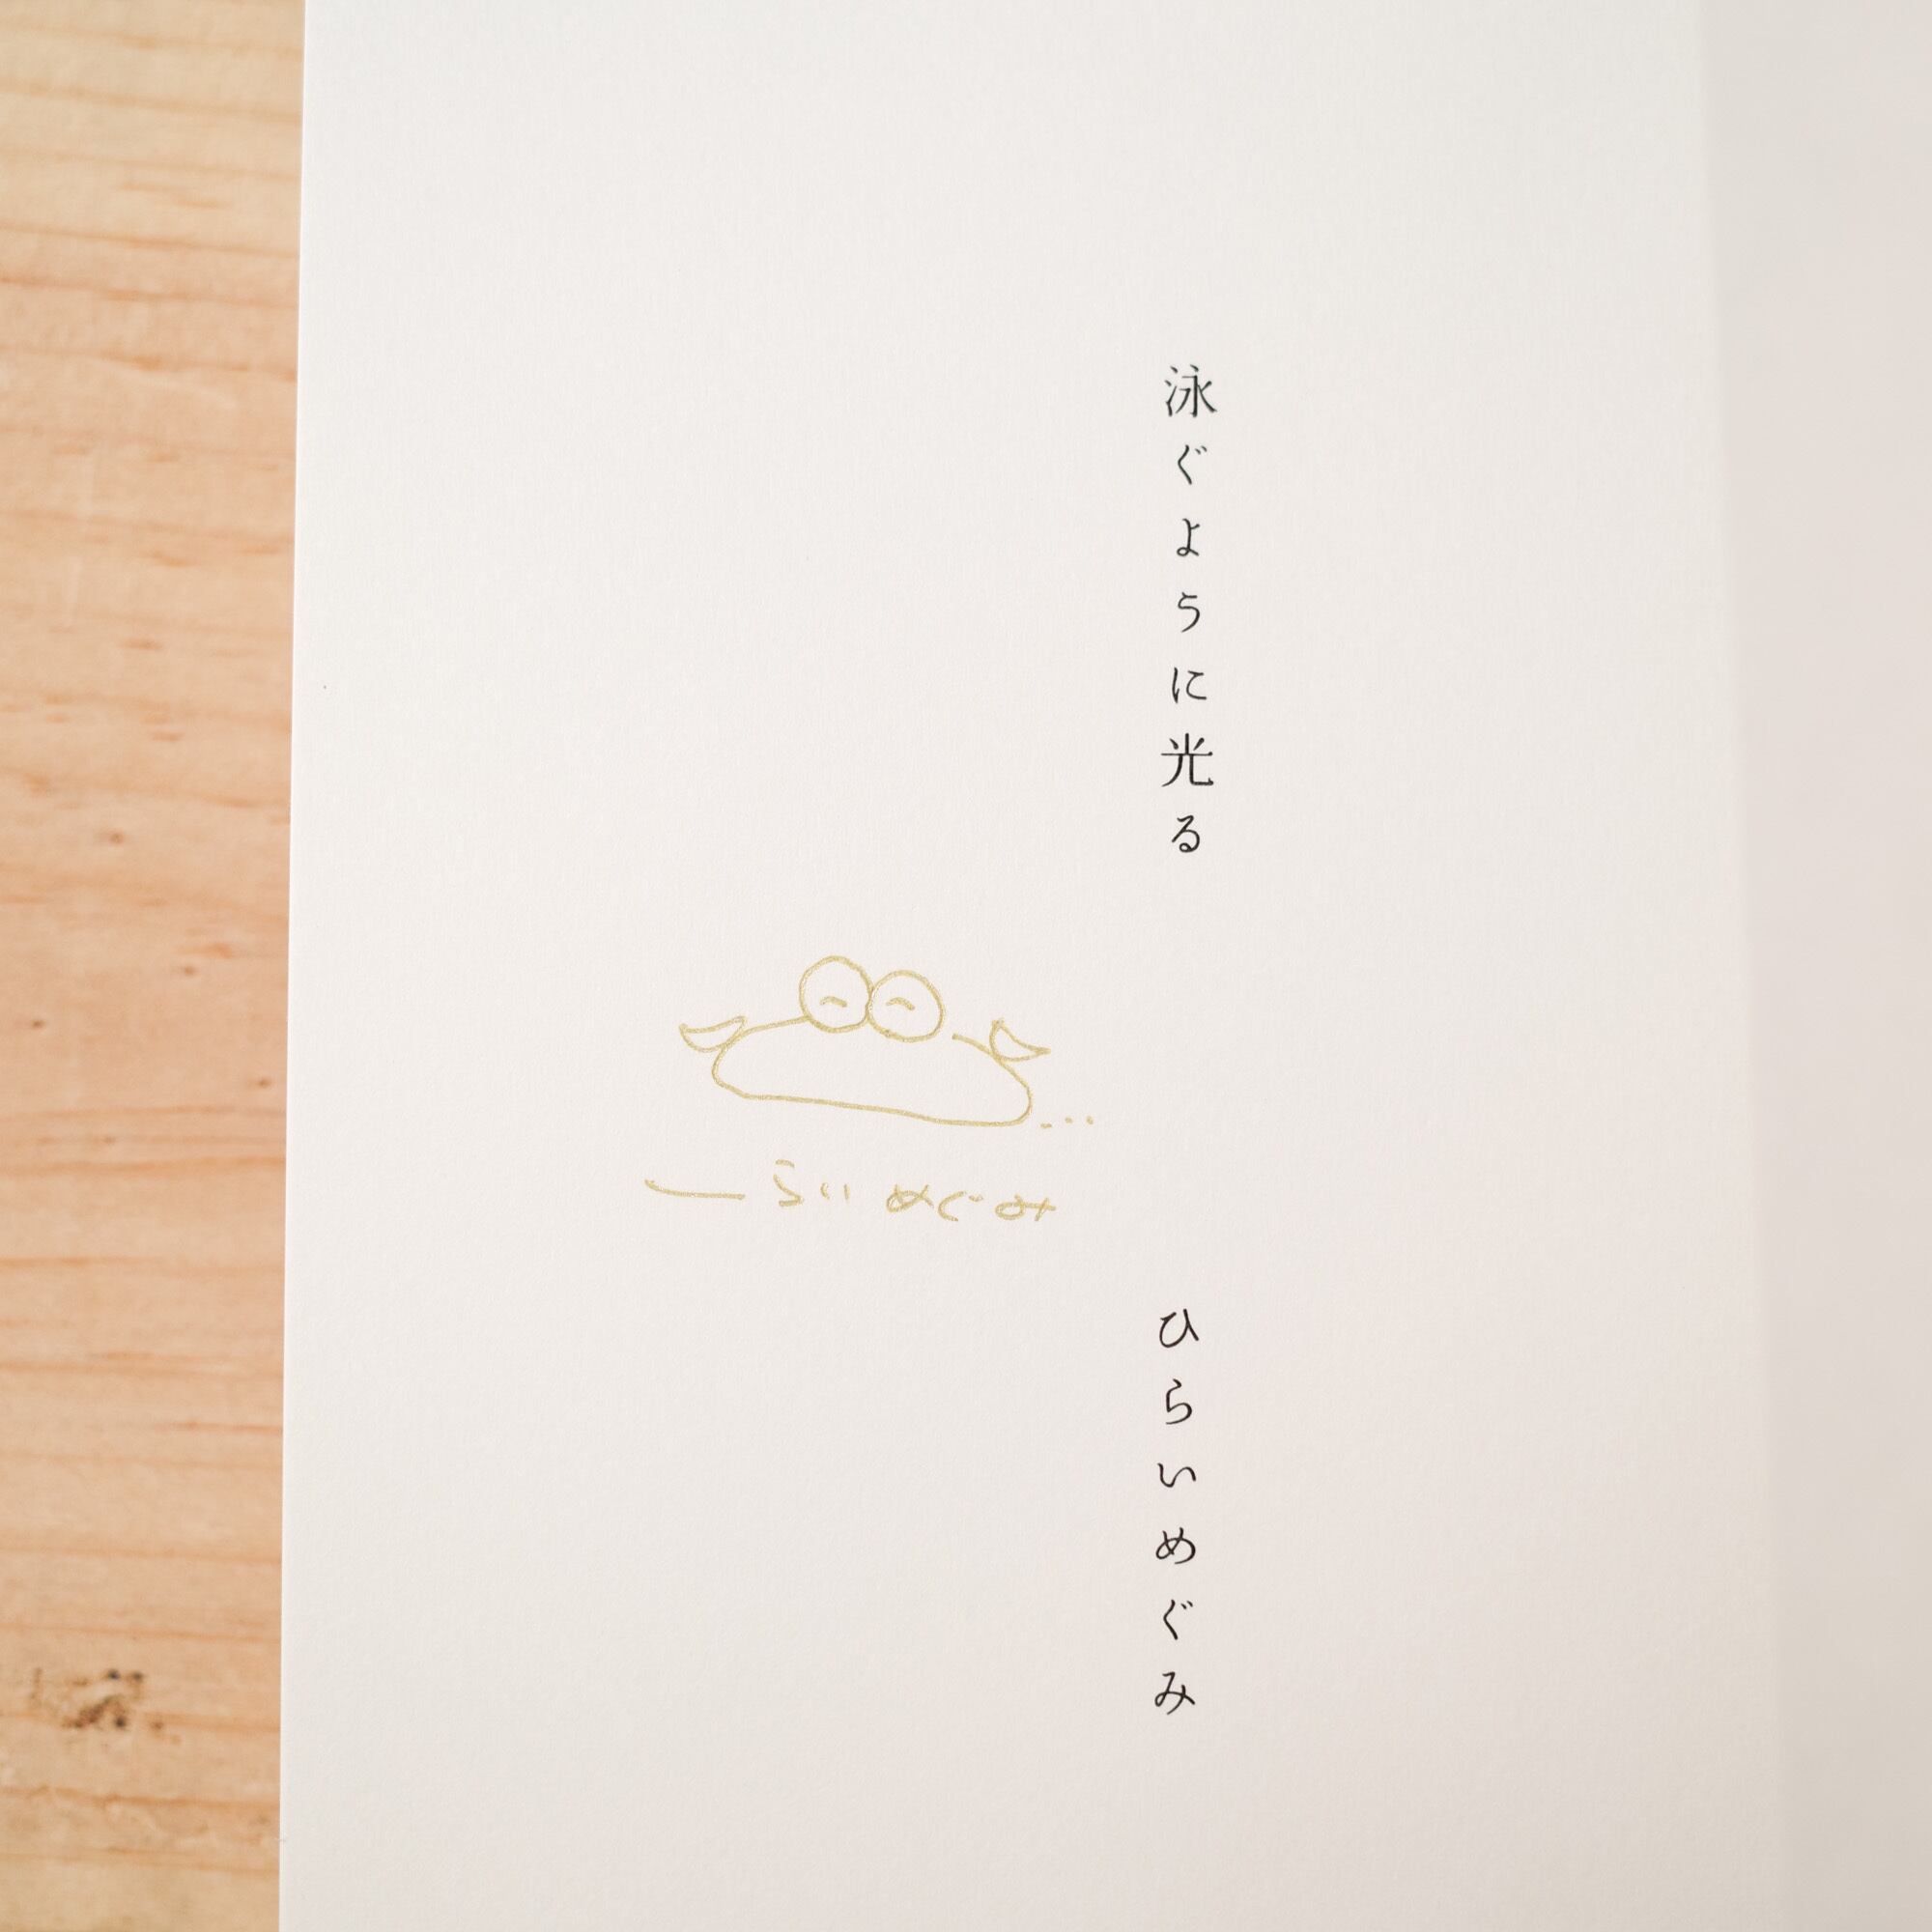 泳ぐように光る
ひらいめぐみ
らいめぐみ